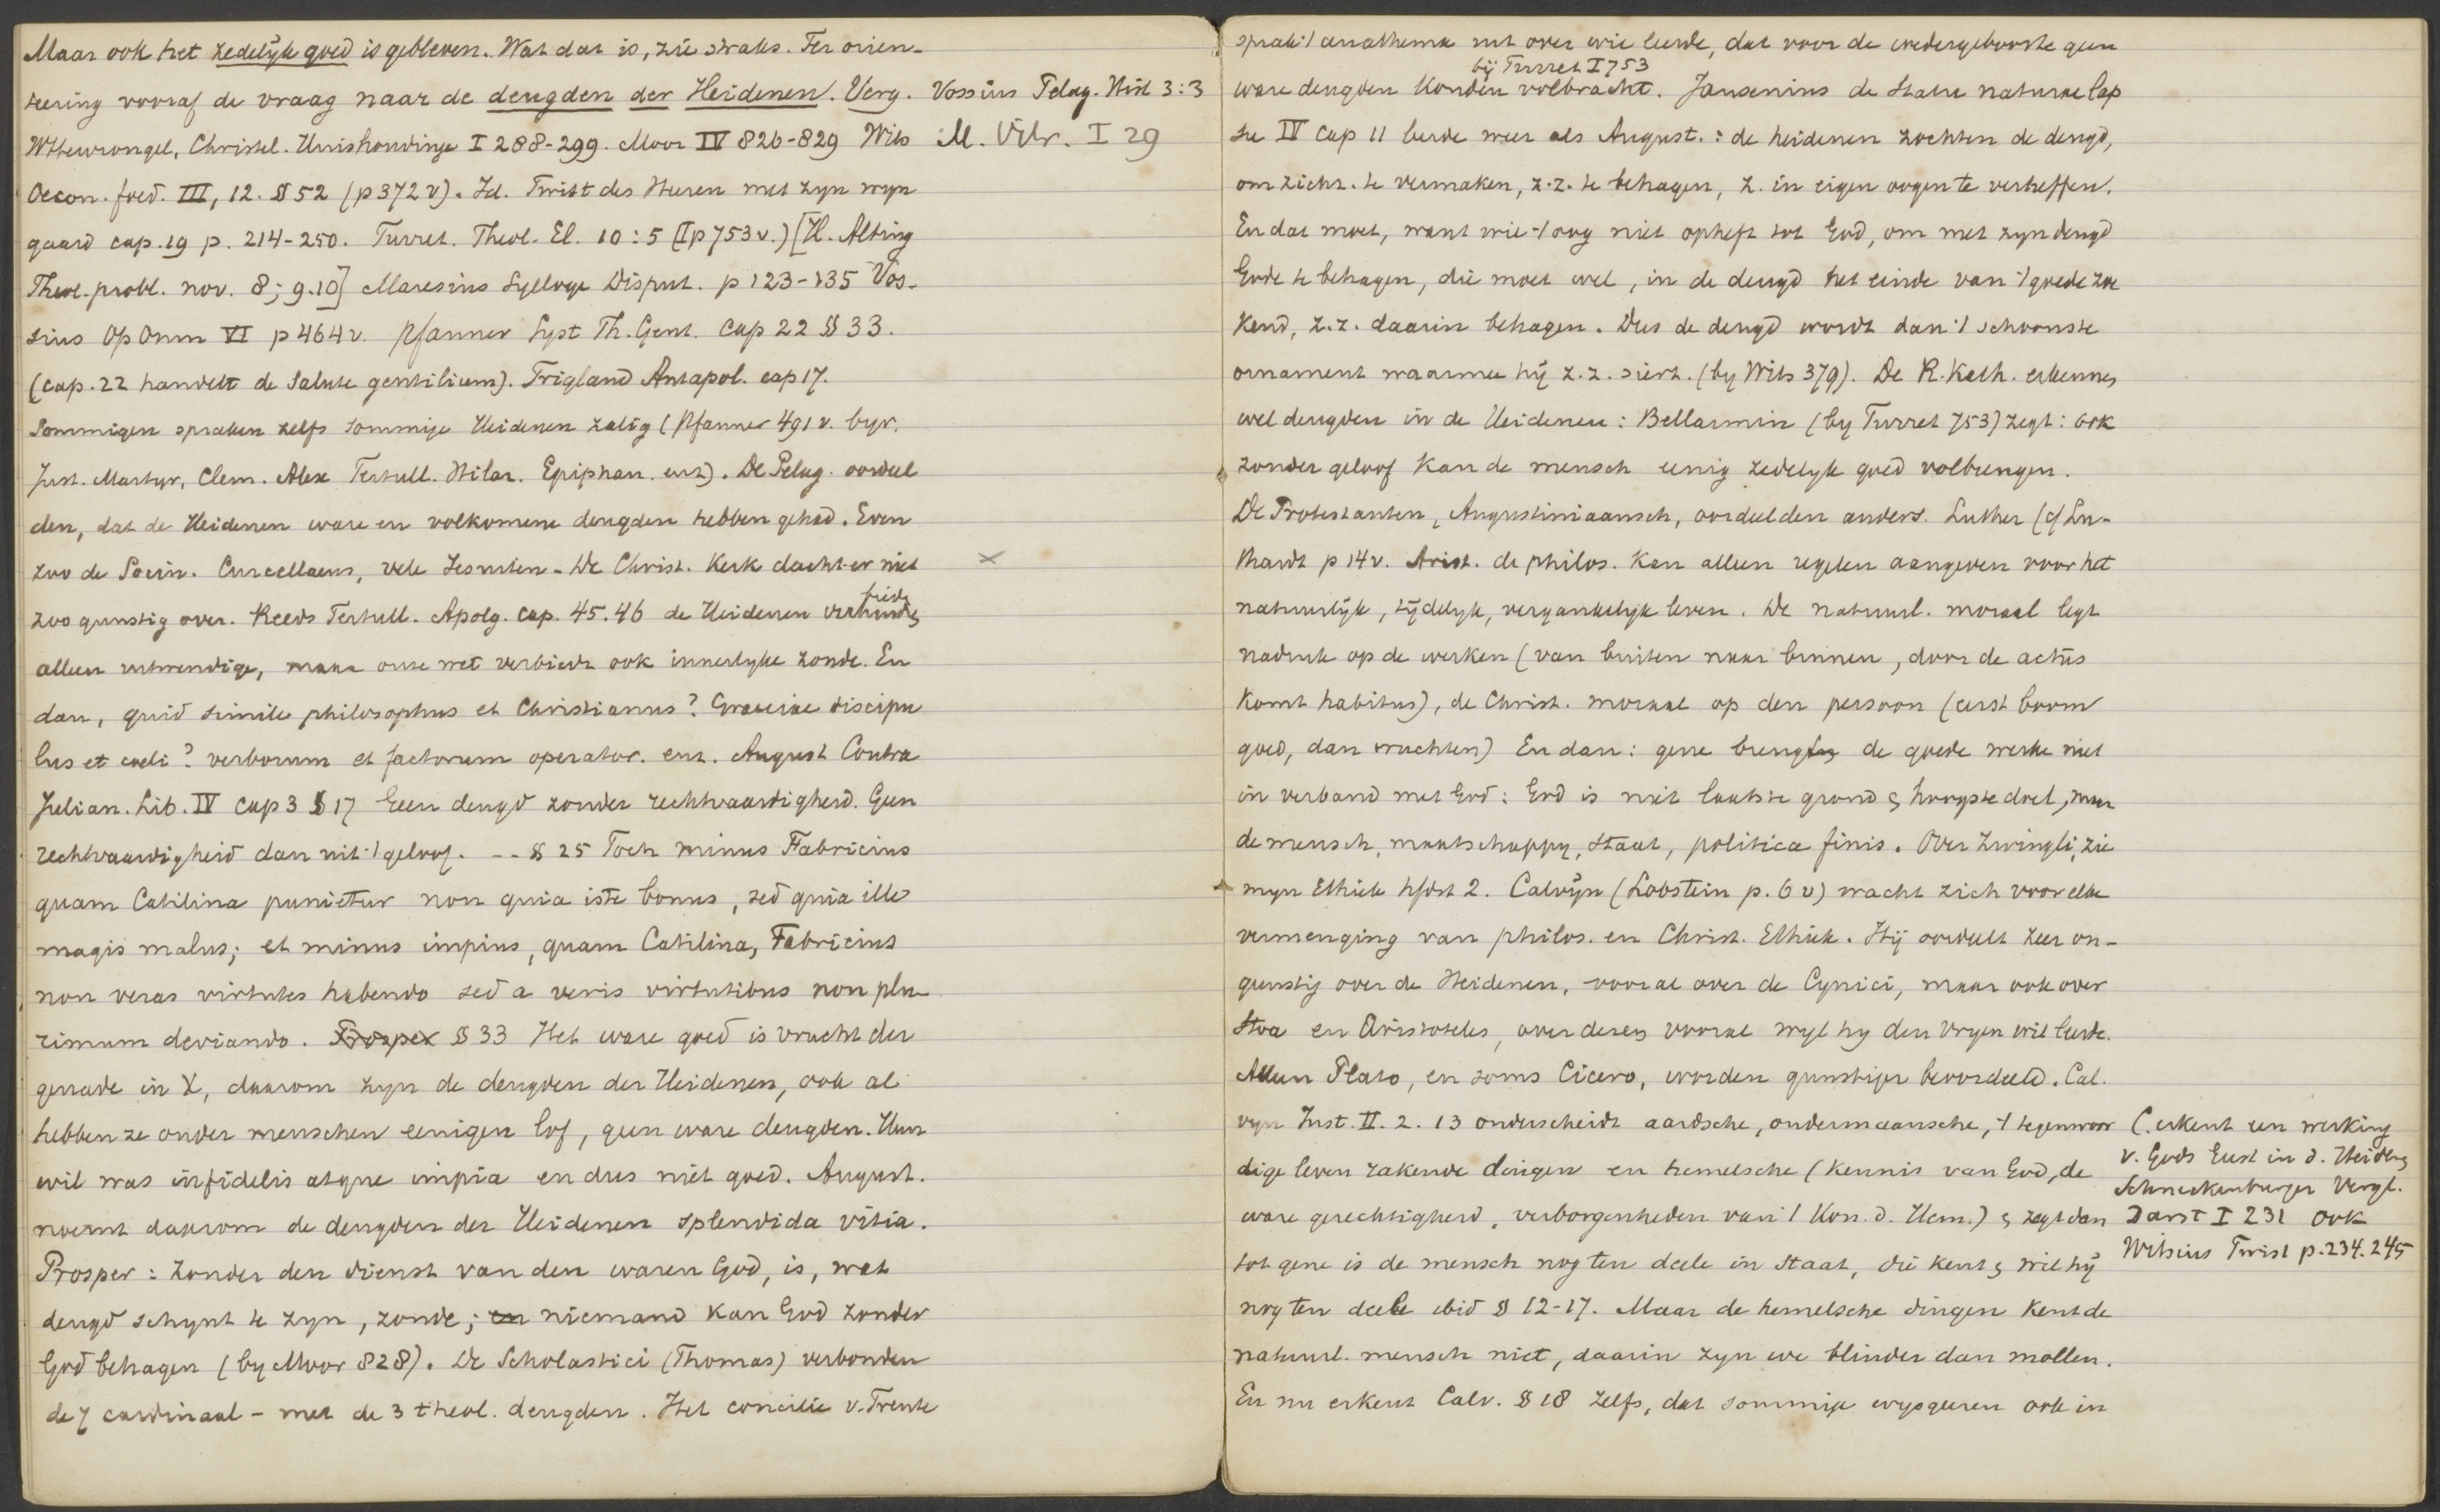 Maar ook het zedelijk goed is gebleven. Wat dat is, zie straks. Ter orien-
teering vooraf de vraag naar de deugden der Heidenen. Verg. Vossius Pelag. Hist 3:3
Wttewrongel, Christel. Huishoudinge I 288-299. Moor IV 826-829 Wits M. Vitr. I 29
Oecon. foed. III, 12. § 52 (p 372 v). Id. Twist des Heeren met zyn wyn
gaard cap. 19 p. 214-250. Turret. Theol. El. 10:5 (I p 753 v.) [H. Alting
Theol. probl. nov. 8; 9.10] Maresius Sylloge Disput. p 123-135 Vos-
sius Op Omn VI p 464 v. Pfanner Syst Th. Gent. Cap 22 § 33.
(cap. 22 handelt de Salute gentilium). Trigland Antapol. cap 17.
Sommigen spraken zelfs sommige Heidenen zalig (Pfanner 491 v. byv.
Just. Martyr, Clem. Alex Tertull. Hilar. Epiphan. enz). De Pelag. oordeel
den, dat de Heidenen ware en volkomene deugden hebben gehad. Even
zoo de Socin. Curcellaeus, vele Jesuiten - De Christ. Kerk dacht er niet ×
zoo gunstig over. Reeds Tertull. Apolg. cap. 45. 46 de Heidenen
alleen uitwendige, maar onze wet verbiedt ook innerlyke zonde. En
dan, quid simile philosophus et Christianus? Graeciae discipu
lus et coeli? verborum et factorum operator. enz. August Contra
Julian. Lib. IV cap 3 § 17 Geen deugd zonder rechtvaardigheid. Geen
rechtvaardigheid dan uit 't geloof. -- § 25 Toch minus Fabricius
quam Catilina punietur non quia iste bonus, sed quia ille
magis malus; et minus impius, quam Catilina, Fabricius
non veras virtutes habendo sed a veris virtutibus non plu
rimum deviando. Prosper § 33 Het ware goed is vrucht der
genade in X, daarom zyn de deugden der Heidenen, ook al
hebben ze onder menschen eenigen lof, geen ware deugden. Hun
wil was infidelis atque impia en dus niet goed. August.
noemt daarom de deugden der Heidenen splendida vitia.
Prosper: zonder den dienst van den waren God, is, wat
deugd schynt te zyn, zonde; en niemand kan God zonder
God behagen (by Moor 828). De Scholastici (Thomas) verbonden
de 4 cardinaal - met de 3 theol. deugden. Het concilie v. Trente
sprak 't anathema uit over wie leerde, dat voor de wedergeboorte geen
bij Turret I 753
ware deugden konden volbracht. Jansenius de Statu naturae lap
sae IV cap 11 leerde weer als August.: de heidenen zochten de deugd,
om zichz. te vermaken, z.z. te behagen, z. in eigen oogen te verheffen.
En dat moet, want wie 't oog niet opheft tot God, om met zyn deugd
Gode te behagen, die moet wel, in de deugd het einde van 't goede zoe
kend, z.z. daarin behagen. Dus de deugd wordt dan 't schoonste
ornament waarmee hij z.z. siert. (by Wits 379). De R. Kath. erkennen
wel deugden in de Heidenen: Bellarmin (by Turret 753) zegt: ook
zonder geloof kan de mensch eenig zedelyk goed volbrengen.
De Protestanten, Augustiniaansch, oordeelden anders. Luther (cf Lu-
thardt p 14 v. Arist. de philos. kan alleen regelen aangeven voor het
natuurlijk, tijdelyk, vergankelyk leven. De natuurl. moraal legt
nadruk op de werken (van buiten naar binnen, door de actus
komt habitus), de Christ. moraal op den persoon (eerst boom
goed, dan vruchten) En dan: gene brengen de goede werken niet
in verband met God: God is niet laatste grond en hoogste doel, maar
de mensch, maatschappy, staat, politica finis. Over Zwingli, zie
myn Ethiek hfdst 2. Calvijn (Lobstein p. 6 v) wacht zich voor elke
vermenging van philos. en Christ. Ethiek. Hij oordeelt zeer on-
gunstig over de Heidenen, vooral over de Cynici, maar ook over
Stoa en Aristoteles, over dezen vooral wyl hy den vryen wil leerde.
Alleen Plato, en soms Cicero, worden gunstiger beoordeeld. Cal.
vyn Inst. II. 2. 13 onderscheidt aardsche, ondermaansche, 't tegenwoor
dige leven rakende dingen en hemelsche (kennis van God, de
ware gerechtigheid, verborgenheden van 't Kon. d. Hem.) en zegt dan
tot gene is de mensch nog ten deele in staat, die kent en wil hij
nog ten deele ibid § 12-17. Maar de hemelsche dingen kent de
natuurl. mensch niet, daarin zyn we blinder dan mollen.
En nu erkent Calv. § 18 zelfs, dat sommige wysgeeren ook in
C. erkent een werking
v. Gods Geest in d. Heidenen
Schneckenburger Vergl.
Darst I 231 ook
Witsius Twist p. 234. 245